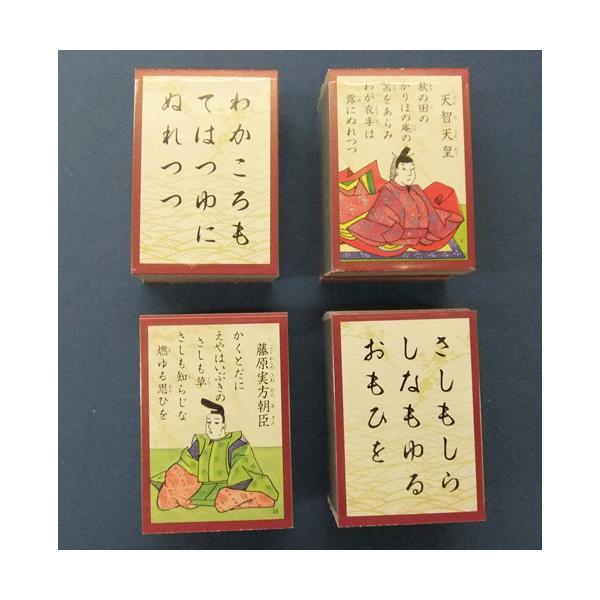 わかころも
てはつゆに
ぬれつつ
天智天皇
秋の田の
かりほの庵の
苫をあらみ
わが衣手は
露にぬれつつ
藤原実方朝臣
かくとだに
えやはいぶきの
さしも草
さしも知らじな
燃ゆる思ひを
さしもしら
しなもゆる
おもひを